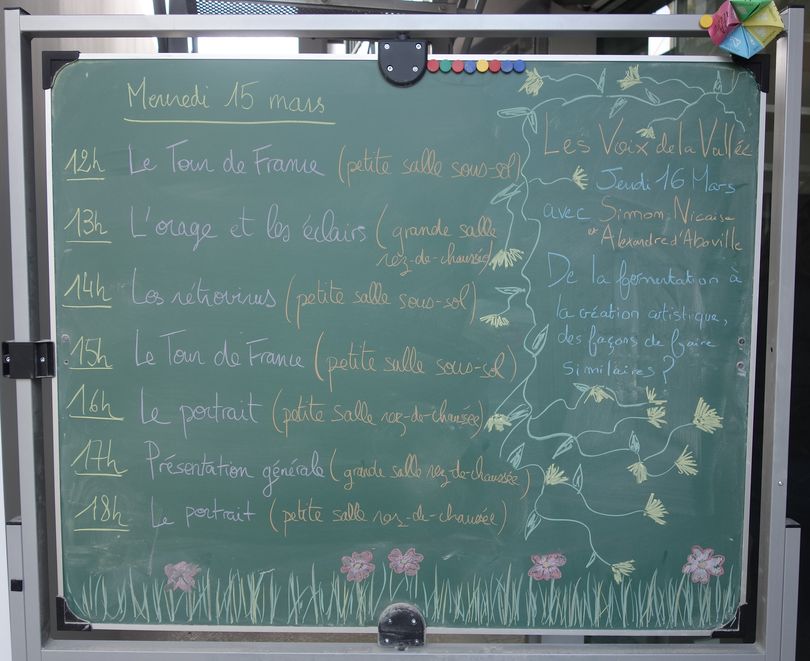 Mercredi 15 mars
12h Le Tour de France (petite salle sous-sol)
13h L'orage et les éclairs (grande salle
rez-de-chaussée)
14h Les rétrovirus (petite salle sous-sol)
15h Le Tour de France (petite salle sous-sol)
16h Le portrait (petite salle rez-de-chaussée)
17h Présentation générale (grande salle rez-de-chaussée)
18h Le portrait (petite salle rez-de-chaussée)
Les Voix de la Vallée
Jeudi 16 Mars
avec Simmon Nicaise
et Alexandre d'Aboville
De la fermentation à
la création artistique,
des façons de faire
similaires ?